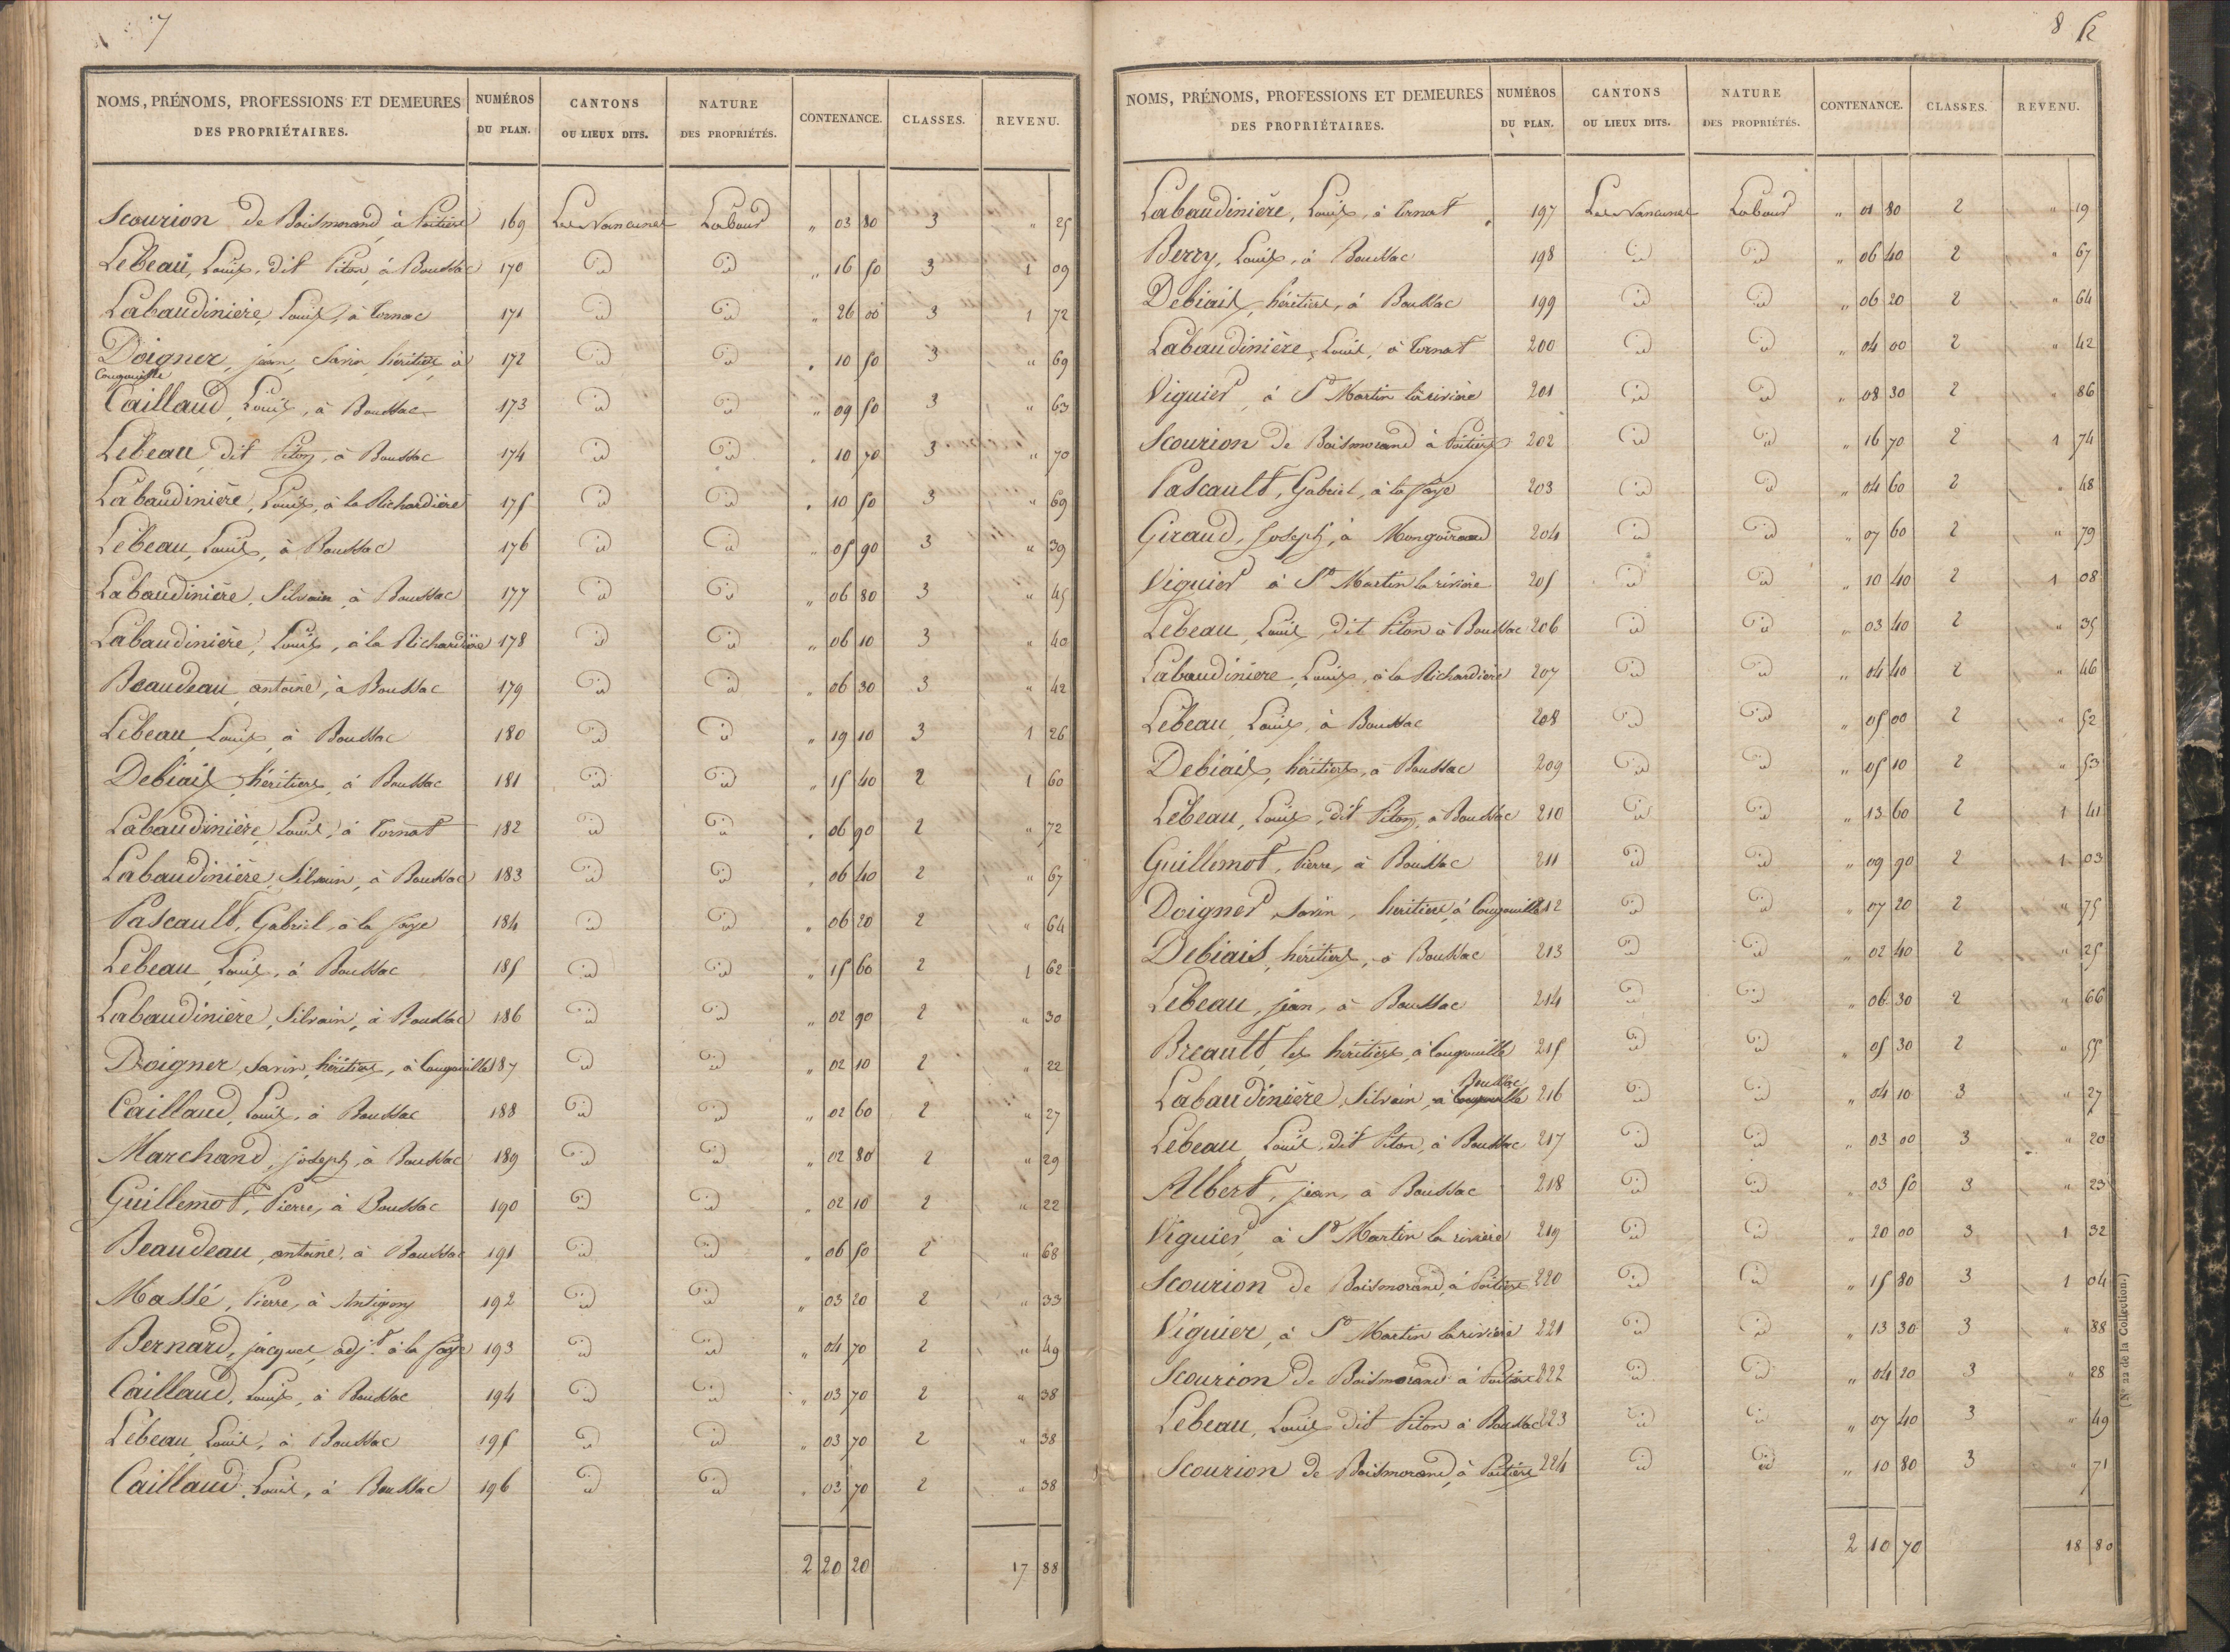 7
NOMS, PRÉNOMS, PROFESSIONS ET DEMEURES DES PROPRIÉTAIRES. NUMÉROS DU PLAN. CANTONS OU LIEUX DITS. NATURE DES PROPRIÉTÉS. CONTENANCE. CLASSES. REVENU.
Scourion de Boismorand, à Poitiers 169 Labour " 03 80 3 " 25
Lebeau, Louis, dit Piton, à Boussac 170 d° d° " 16 50 3 1 09
Labaudinière, Louis, à Tornac 171 d° d° " 26 00 3 1 72
Doigner, jean, Savin, héritiers à 172 d° d° " 10 50 3 " 69
Cougouille
Caillaud, Louis, à Boussac 173 d° d° " 09 50 3 " 63
Lebeau dit Piton, à Boussac 174 d° d° " 10 70 3 " 70
Labaudinière, Louis, à la Richardière 175 d° d° " 10 50 3 " 69
Lebeau, Louis, à Boussac 176 d° d° " 05 90 3 " 39
Labaudinière, Silvain à Boussac 177 d° d° " 06 80 3 " 45
Labaudinière, Louis, à la Richardière 178 d° d° " 06 10 3 " 40
Beaudeau antoine, à Boussac 179 d° d° " 06 30 3 " 42
Lebeau Louis à Boussac 180 d° d° " 19 10 3 1 26
Debiais héritiers, à Boussac 181 d° d° " 15 40 2 1 60
Labaudinière Louis, à Tornat 182 d° d° " 06 90 2 " 72
Labaudinière, Silvain, à Boussac 183 d° d° " 06 40 2 " 67
Pascault, Gabriel, à la faye 184 d° d° " 06 20 2 " 64
Lebeau Louis, à Boussac 185 d° d° " 15 60 2 1 62
Labaudinière, Silvain, à Boussac 186 d° d° " 02 90 2 " 30
Doigner, Savin, héritiers, à Cougouille 187 d° d° " 02 10 2 " 22
Caillaud, Louis, à Boussac 188 d° d° " 02 60 2 " 27
Marchand, joseph, à Boussac 189 d° d° " 02 80 2 " 29
Guillemot, Pierre, à Boussac 190 d° d° " 02 10 2 " 22
Beaudeau, antoine, à Boussac 191 d° d° " 06 50 2 " 68
Massé, Pierre, à Antigny 192 d° d° " 03 20 2 " 33
Bernard, jacques, adj.t à la faye 193 d° d° " 04 70 2 " 49
Caillaud, Louis, à Boussac 194 d° d° " 03 70 2 " 38
Lebeau Louis, à Boussac 195 d° d° " 03 70 2 " 38
Caillaud Louis, à Boussac 196 d° d° " 03 70 2 " 38
2 20 20 17 88
8
NOMS, PRÉNOMS, PROFESSIONS ET DEMEURES DES PROPRIÉTAIRES. NUMÉROS DU PLAN. CANTONS OU LIEUX DITS. NATURE DES PROPRIÉTÉS. CONTENANCE. CLASSES. REVENU.
Labaudinière, Louis, à Tornat 197 Labour " 01 80 2 " 19
Berry, Louis, à Boussac 198 d° d° " 06 40 2 " 67
Debiais, héritiers, à Boussac 199 d° d° " 06 20 2 " 64
Labaudinière, Louis, à Tornat 200 d° d° " 04 00 2 " 42
Viguier, à St Martin la rivière 201 d° d° " 08 30 2 " 86
Scourion de Boismorand à Poitiers 202 d° d° " 16 70 2 1 74
Pascault, Gabriel, à la faye 203 d° d° " 04 60 2 " 48
Giraud, Joseph, à 204 d° d° " 07 60 2 " 79
Viguier à St Martin la rivière 205 d° d° " 10 40 2 1 08
Lebeau, Louis, dit Piton à Boussac 206 d° d° " 03 40 2 " 35
Labaudinière, Louis, à la Richardière 207 d° d° " 04 40 2 " 46
Lebeau, Louis, à Boussac 208 d° d° " 05 00 2 " 52
Debiais, héritiers, à Boussac 209 d° d° " 05 10 2 " 53
Lebeau, Louis, dit Piton, à Boussac 210 d° d° " 13 60 2 1 41
Guillemot, Pierre, à Boussac 211 d° d° " 09 90 2 1 03
Doigner, Savin, héritiers, à Cougouille 212 d° d° " 07 20 2 " 75
Debiais, héritiers, à Boussac 213 d° d° " 02 40 2 " 25
Lebeau, jean, à Boussac 214 d° d° " 06 30 2 " 66
Breault, les héritiers, à Cougouille 215 d° d° " 05 30 2 " 55
Boussac
Labaudinière, Silvain, à Cougouille 216 d° d° " 04 10 3 " 27
Lebeau Louis, dit Piton, à Boussac 217 d° d° " 03 00 3 " 20
Albert, jean, à Boussac 218 d° d° " 03 50 3 " 23
Viguier, à St Martin la rivière 219 d° d° " 20 00 3 1 32
Scourion de Boismorand, à Poitiers 220 d° d° " 15 80 3 1 04
Viguier, à St Martin la rivière 221 d° d° " 13 30 3 " 88
Scourion de Boismorand à Poitiers 222 d° d° " 04 20 3 " 28
Lebeau, Louis dit Piton à Boussac 223 d° d° " 07 40 3 " 49
Scourion de Boismorand, à Poitiers 224 d° d° " 10 80 3 " 71
2 10 70 18 80
(N° 22 de la Collection.)